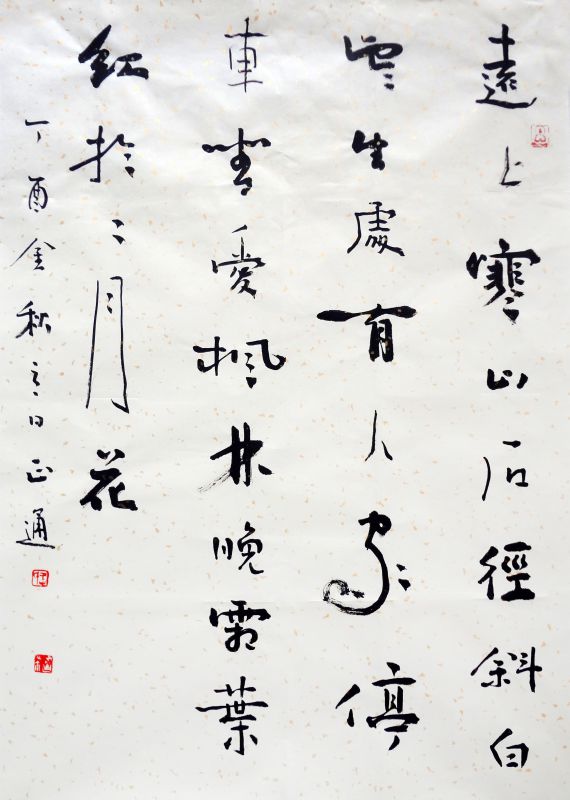 遠上寒山石徑斜白
雲生處有人家停
車坐愛楓林晚霜葉
紅於二月花
丁酉金秋之日正通